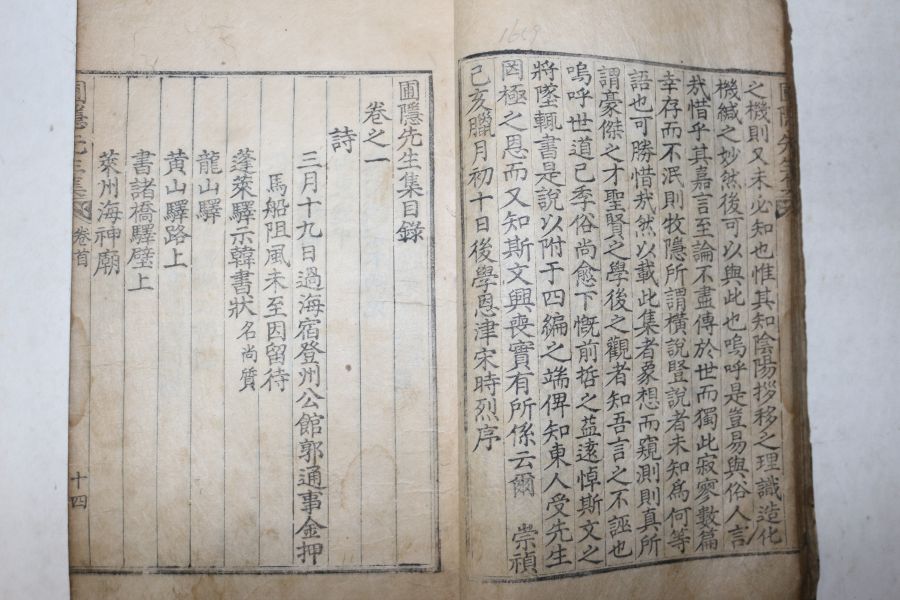 1659
之機則又未必知也惟其知陰陽推移之理識造化
機緘之妙然後可以與此也嗚呼是豈易與俗人言
㢤惜乎其嘉言至論不盡傳於世而獨此寂寥數篇
幸存而不泯則牧隱所謂橫說竪說者未知爲何等
語也可勝惜㢤然以載此集者象想而窺測則眞所
謂豪傑之才聖賢之學後之觀者知吾言之不誣也
嗚呼世道已季俗尚愈下慨前哲之益遠悼斯文之
將墜輒書是說以附于四編之端俾知東人受先生
罔極之恩而又知斯文興喪實有所係云爾 崇禎
己亥臘月初十日後學恩津宋時烈序
圃隱先生集目錄
卷之一
詩
三月十九日過海宿登州公館郭通事金押
馬船阻風未至因留待
蓬萊驛示韓書狀名尚質
龍山驛
黃山驛路上
書諸橋驛壁上
萊州海神廟
圃隱先生集 卷首 十四